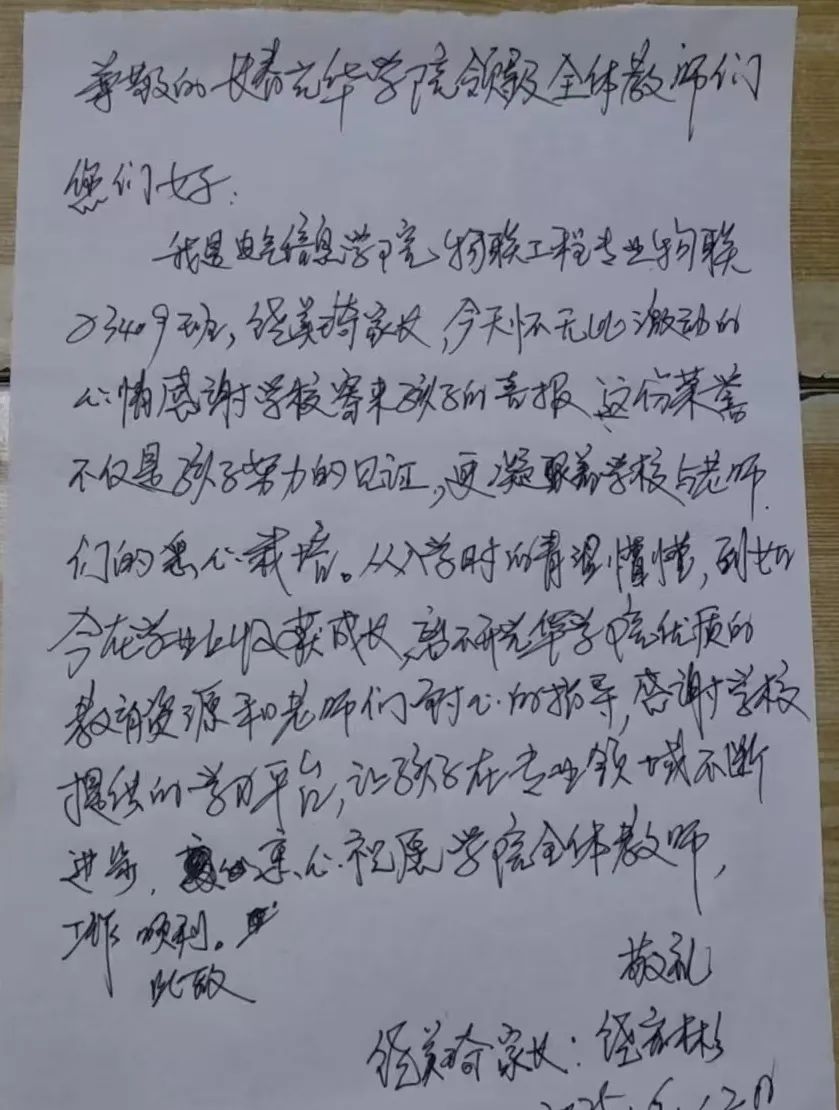 尊敬的长春光华学院领导及全体教师们
您们好:
我是电气信息学院物联工程专业物联
23409班,美琦家长,今天怀无比激动的
心情感谢学校寄来孩子的喜报 这份荣誉
不仅是孩子努力的见证,更凝聚着学校与老师
们的悉心栽培。从入学时的青涩懵懂,到如
今在学业上收获成长,离不开光华学院优质的
教育资源和老师们耐心的指导,感谢学校
提供的学习平台,让孩子在专业领域不断
进步,衷心祝愿学院全体教师,
工作顺利。
此致
敬礼
美琦家长:彬